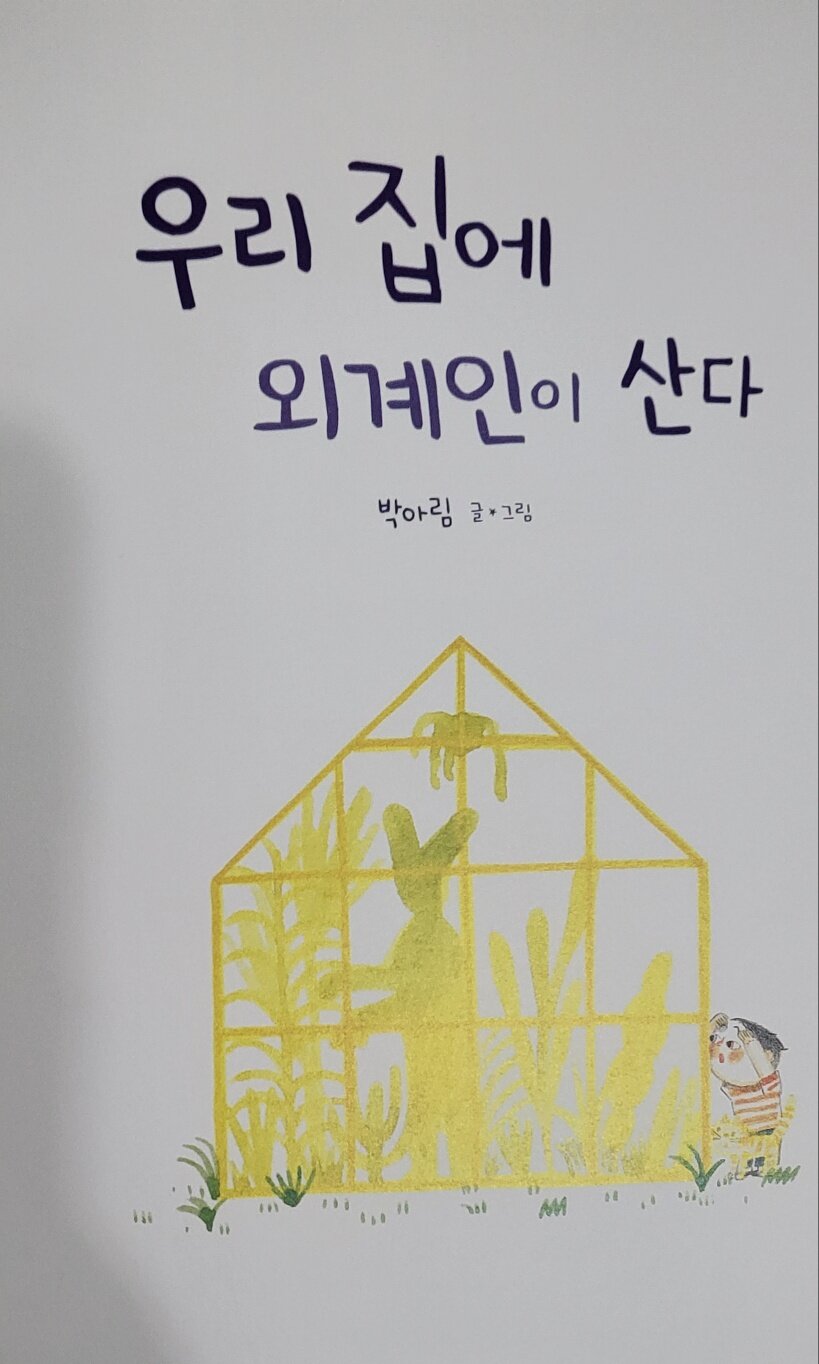 우리 집에
외계인이 산다
박아림 글*그림